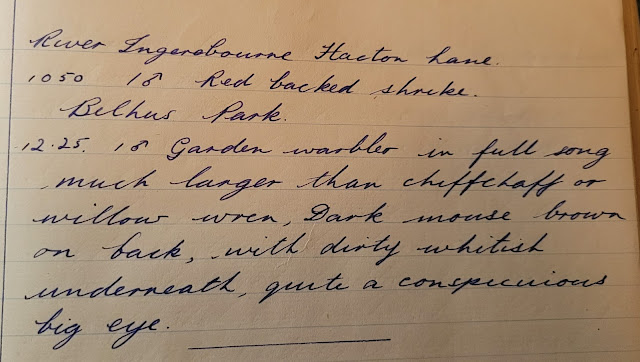 River Ingerebourne Hacton Lane.
1050 1♂ Red backed shrike.
Belhus Park.
12.25. 1♂ Garden warbler in full song
much larger than chiffchaff or
willow wren, Dark mouse brown
on back, with dirty whitish
underneath, quite a conspicuious
big eye.